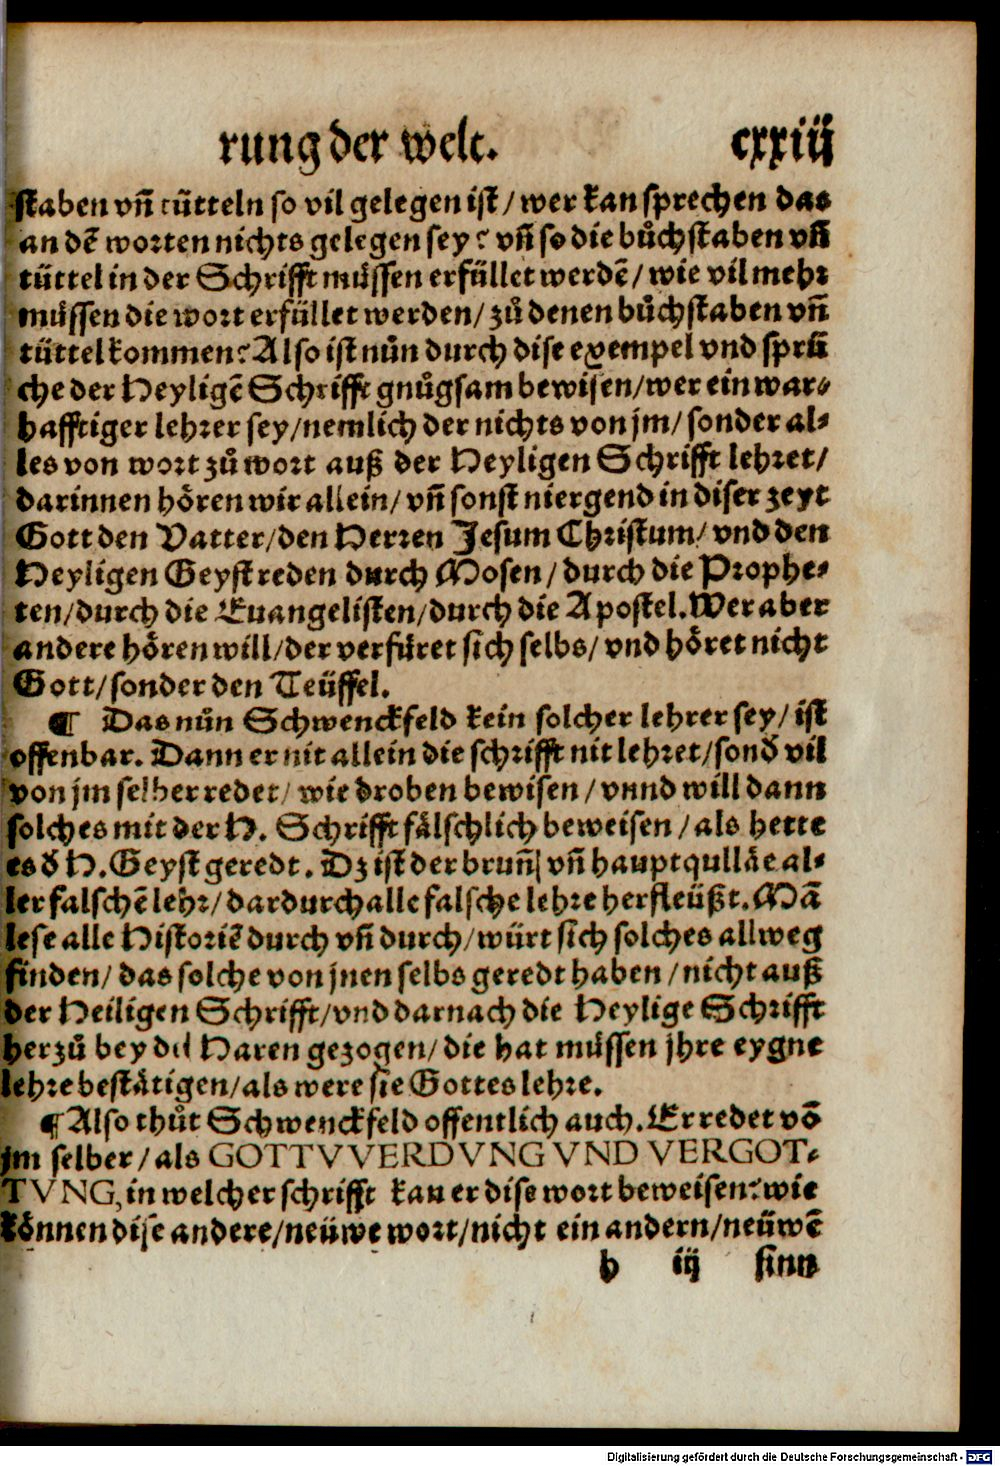 rung der welt. cxxiij
staben vñ tütteln so vil gelegen ist / wer kan sprechen das
an dẽ worten nichts gelegen sey? vñ so die bůchstaben vñ
tüttel in der Schrifft müssen erfüllet werdẽ / wie vil mehr
müssen die wort erfüllet werden / zů denen bůchstaben vñ
tüttel kommen? Also ist nůn durch dise exempel vnd sprü
che der Heyligẽ Schrifft gnůgsam bewisen / wer ein war-
hafftiger lehrer sey / nemlich der nichts von jm / sonder al-
les von wort zů wort auß der Heyligen Schrifft lehret /
darinnen hören wir allein / vñ sonst niergend in diser zeyt
Gott den Vatter / den Herren Jesum Christum / vnd den
Heyligen Geyst reden durch Mosen / durch die Prophe-
ten / durch die Euangelisten / durch die Apostel. Wer aber
andere hören will / der verfüret sich selbs / vnd höret nicht
Gott / sonder den Teüffel.
¶ Das nůn Schwenckfeld kein solcher lehrer sey / ist
offenbar. Dann er nit allein die schrifft nit lehret / sonđ vil
von jm selber redet / wie droben bewisen / vnnd will dann
solches mit der H. Schrifft fälschlich beweisen / als hette
es đ H. Geyst geredt. Dz ist der brunñ vñ hauptqulläe al-
ler falschẽ lehr / dardurch alle falsche lehre herfleüßt. Mã
lese alle Historiẽ durch vñ durch / würt sich solches allweg
finden / das solche von jnen selbs geredt haben / nicht auß
der Heiligen Schrifft / vnd darnach die Heylige Schrifft
herzů bey den Haren gezogen / die hat müssen jhre eygne
lehre bestätigen / als were sie Gottes lehre.
¶ Also thůt Schwenckfeld offentlich auch. Er redet võ
jm selber / als GOTTVVERDVNG VND VERGOT-
TVNG, in welcher schrifft kan er dise wort beweisen? wie
können dise andere / neüwe wort / nicht ein andern / neüwẽ
h iij sinn
Digitalisierung gefördert durch die Deutsche Forschungsgemeinschaft - DFG